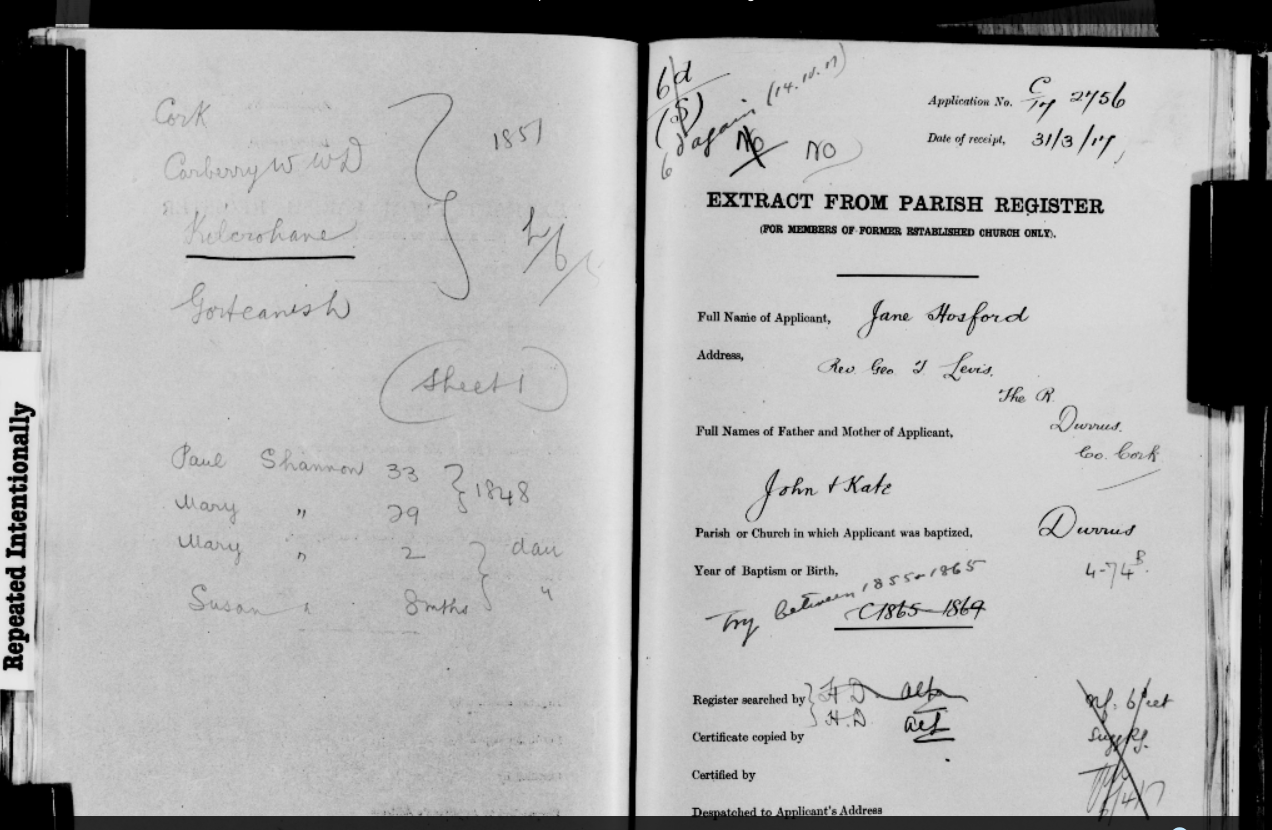 Repeated Intentionally
Cork
Carberry W W D
Kilcrohane
Gorteanish
1851
(Sheet 1)
Paul Shannon 33 } 1848
Mary " 29
Mary " 2 } dau
Susan " 8mths "
6d
6d again (14.10.17)
No NO
Application No. C/17 2756
Date of receipt, 31/3/17
EXTRACT FROM PARISH REGISTER
(FOR MEMBERS OF FORMER ESTABLISHED CHURCH ONLY).
Full Name of Applicant, Jane Hosford
Address, Rev Geo J Levis.
The R.
Durrus.
Co. Cork
Full Names of Father and Mother of Applicant,
John & Kate
Parish or Church in which Applicant was baptized, Durrus
Year of Baptism or Birth, 4-74 B.
Try between 1855-1865
C1865-1869
Register searched by } H D
H.D.
Certificate copied by
Certified by
Despatched to Applicant's Address